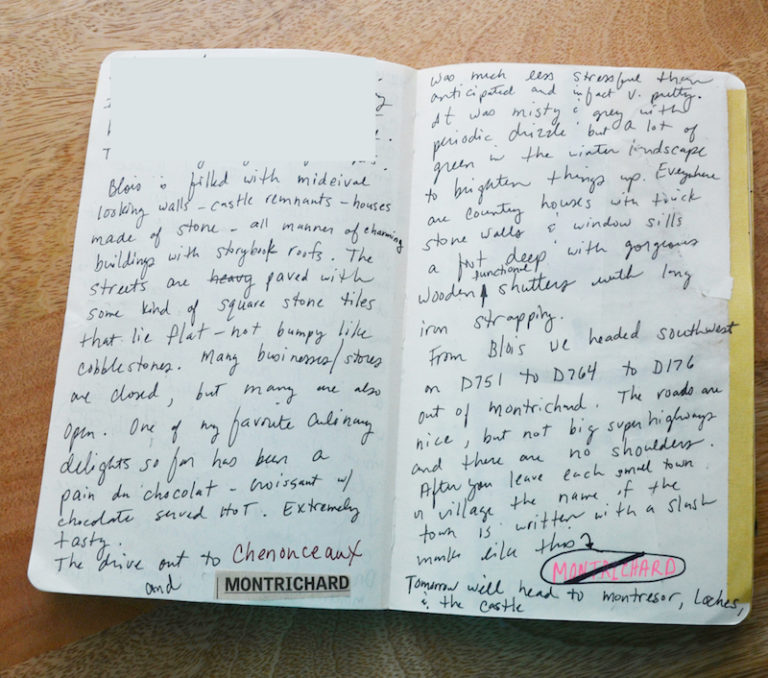 Blois is filled with mideival
looking walls - castle remnants - houses
made of stone - all manner of charming
buildings with storybook roofs. The
streets are heavy paved with
some kind of square stone tiles
that lie flat - not bumpy like
cobblestones. Many businesses/stores
are closed, but many are also
open. One of my favorite culinary
delights so far has been a
pain du chocolat - croissant w/
chocolate served HOT. Extremely
tasty.
The drive out to Chenonceaux
and MONTRICHARD
was much less stressful than
anticipated and in fact v. pretty.
It was misty & grey with
periodic drizzle but a lot of
green in the winter landscape
to brighten things up. Everywhere
are country houses with thick
stone walls & window sills
a foot deep with gorgeous
functional
wooden shutters with long
iron strapping.
From Blois we headed southwest
on D751 to D764 to D176
out of Montrichard. The roads are
nice, but not big superhighways
and there are no shoulders.
After you leave each small town
or village the name of the
town is written with a slash
mark like this
MONTRICHARD
Tomorrow we'll head to Montresor, Loches,
& the castle